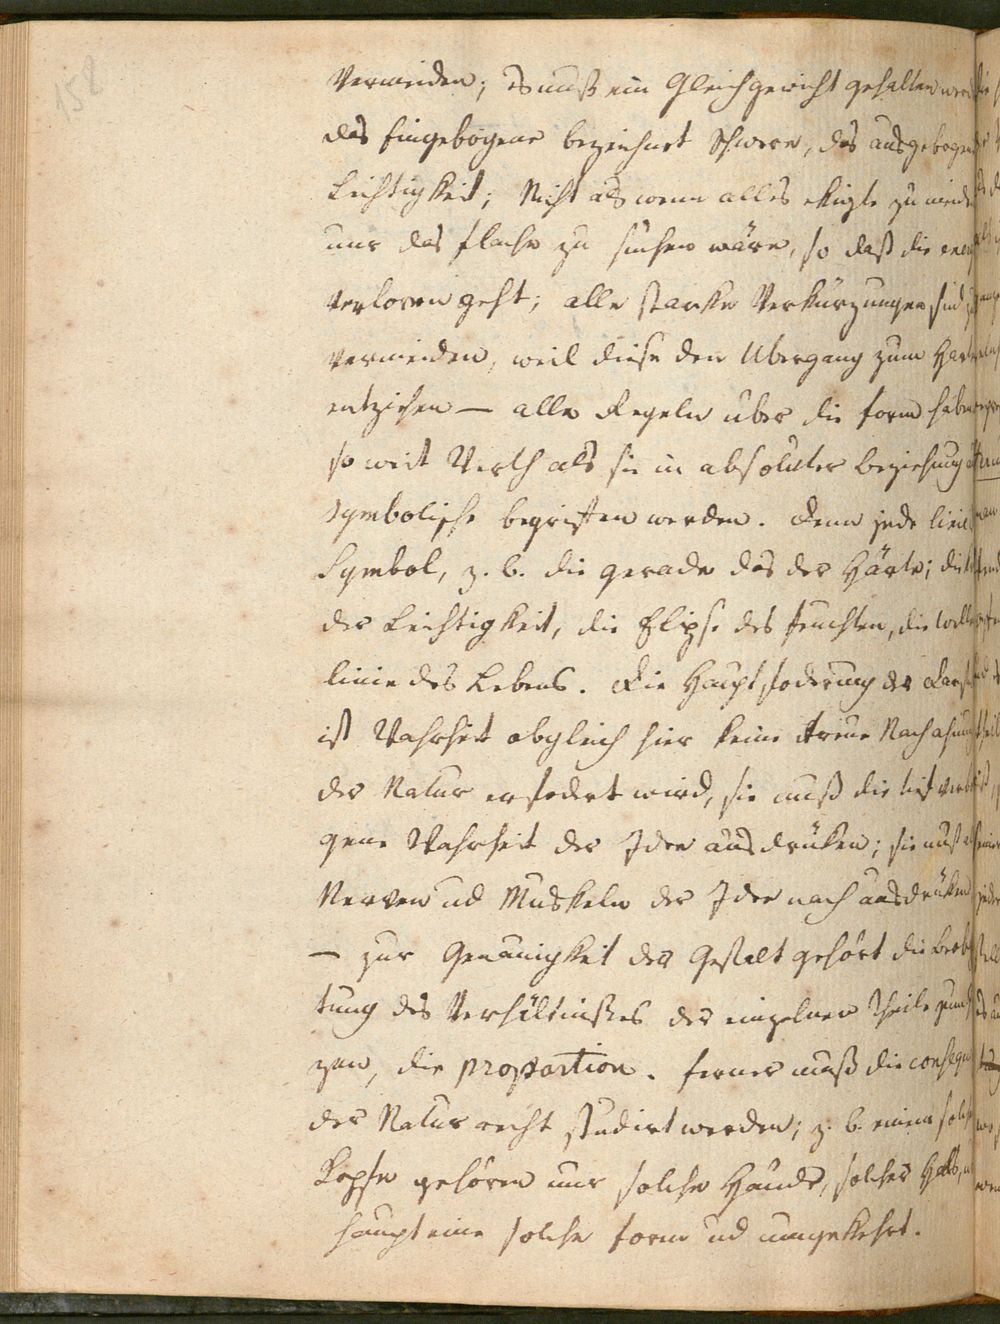 158
vermeiden; es muß ein Gleichgewicht gehalten werd
das Eingebogene bezeichnet Schwere, das ausgebogen
Leichtigkeit; Nicht als wenn alles ekigte zu meide
nur das flache zu suchen wäre, so daß die
verloren geht; alle starke Verkürzungen sind z
vermeiden, weil diese den Ubergang zum Hart
entziehen — alle Regeln über die Form haben
so weit Werth als sie in absoluter Beziehung
symbolische begriffen werden. Denn jede linie
Symbol, z. b. die gerade das der Härte; die
der Leichtigkeit, die Elipse des feuchten, die Welle
linie des Lebens. Die Hauptfoderung der Darst
ist Wahrheit obgleich hier keine treue Nachahmung
der Natur erfodert wird, sie muß die tief verb
gene Wahrheit der Idee ausdrüken; sie muß
Nerven und Muskeln der Idee nach ausdrüken
— zur Genauigkeit der Gestalt gehört die Beob
tung des Verhältnißes der einzelnen Theile zum
zen, die proportion. ferner muß die consequ
der Natur recht studirt werden; z. b. einem solch
Kopfe gehören nur solche Hände, solcher Hals,
haupt eine solche Form und umgekehrt.